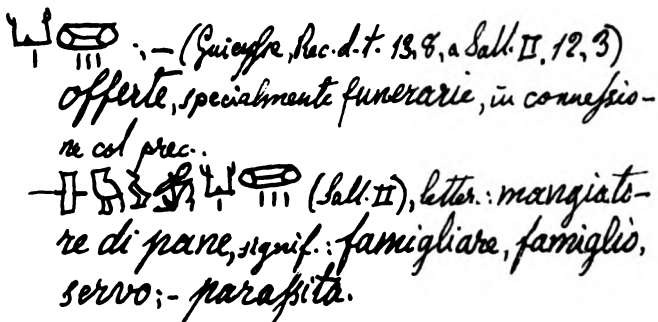 ;– (Guieysse, Rec. d. t. 13, 8, a Sall. II, 12, 3)
offerte, specialmente funerarie, in connessio-
ne col prec..
(Sall. II), letter.: mangiato-
re di pane, signif.: famigliare, famiglio,
servo;- parassita.